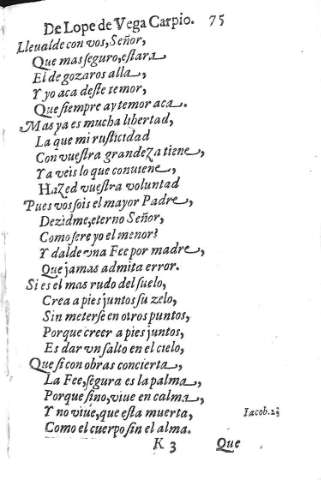 De Lope de Vega Carpio. 75
Lleualde con vos, Señor,
Que mas seguro, estara
El de gozaros alla,
Y yo aca deste temor,
Que siempre ay temor aca.
Mas ya es mucha libertad,
La que mi rusticidad
Con vuestra grandeza tiene,
Ya veis lo que conuiene,
Hazed vuestra voluntad
Pues vos sois el mayor Padre,
Dezidme, eterno Señor,
Como sere yo el menor?
Y dalde vna Fee por madre,
Que jamas admita error.
Si es el mas rudo del suelo,
Crea a pies juntos su zelo,
Sin meterse en otros puntos,
Porque creer a pies juntos,
Es dar vn salto en el cielo,
Que si con obras concierta,
La Fee, segura es la palma,
Porque sino, viue en calma,
Y no viue, que esta muerta,
Como el cuerpo sin el alma.
Iacob. 2.
K 3 Que